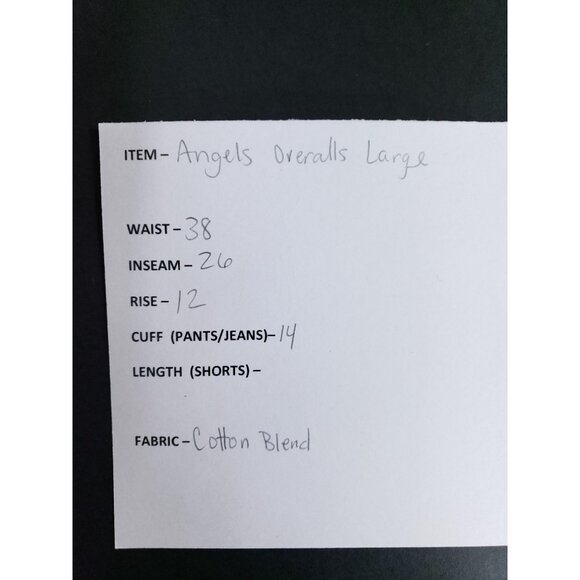 ITEM – Angels Overalls Large
WAIST – 38
INSEAM – 26
RISE – 12
CUFF (PANTS/JEANS)– 14
LENGTH (SHORTS) –
FABRIC – Cotton Blend